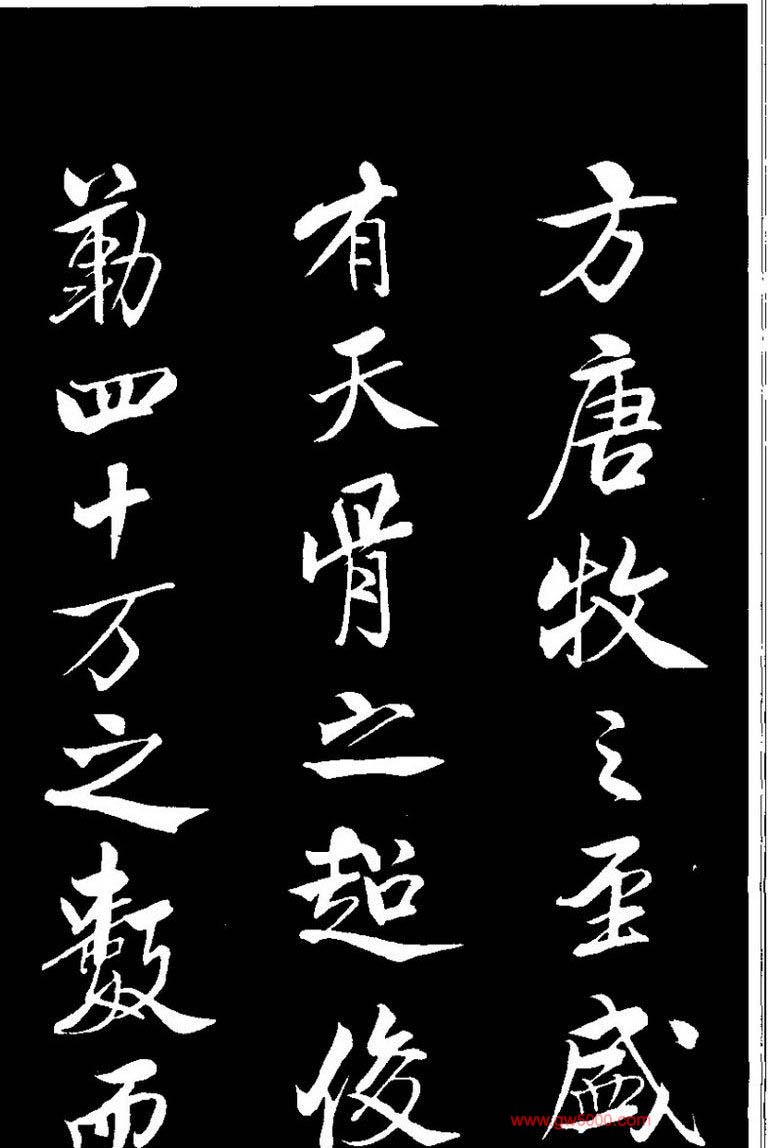 方唐牧之至盛
有天骨之超俊
勒四十万之數而
www.gw5000.com